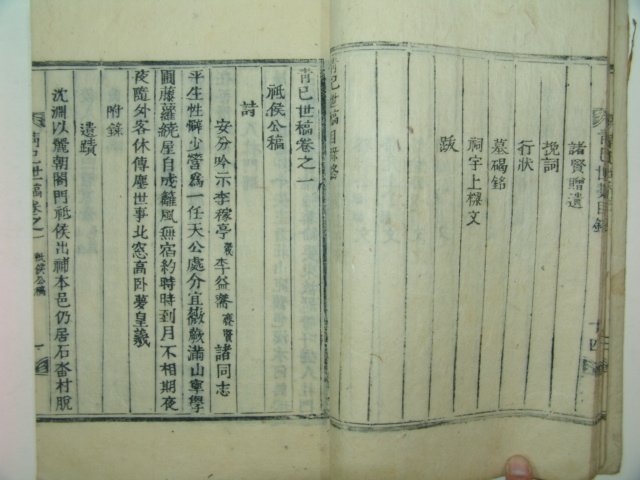 靑己世稿目錄
四
諸賢贈遺
挽詞
行狀
墓碣銘
祠宇上樑文
跋
靑己世稿目錄終
靑己世稿卷之一
祗侯公稿
詩
安分吟示李稼亭 穀 李益齋 齊賢 諸同志
平生性懶少營爲一任天公處分宜薇蕨滿山專學
圃藤蘿繞屋自成籬風無宿約時時到月不相期夜
夜隨外客休傳塵世事北窓高卧夢皇羲
附錄
遺蹟
沈淵以麗朝閤門祗侯出補本邑仍居石畓村脫
靑己世稿卷之一 祗侯公稿 一